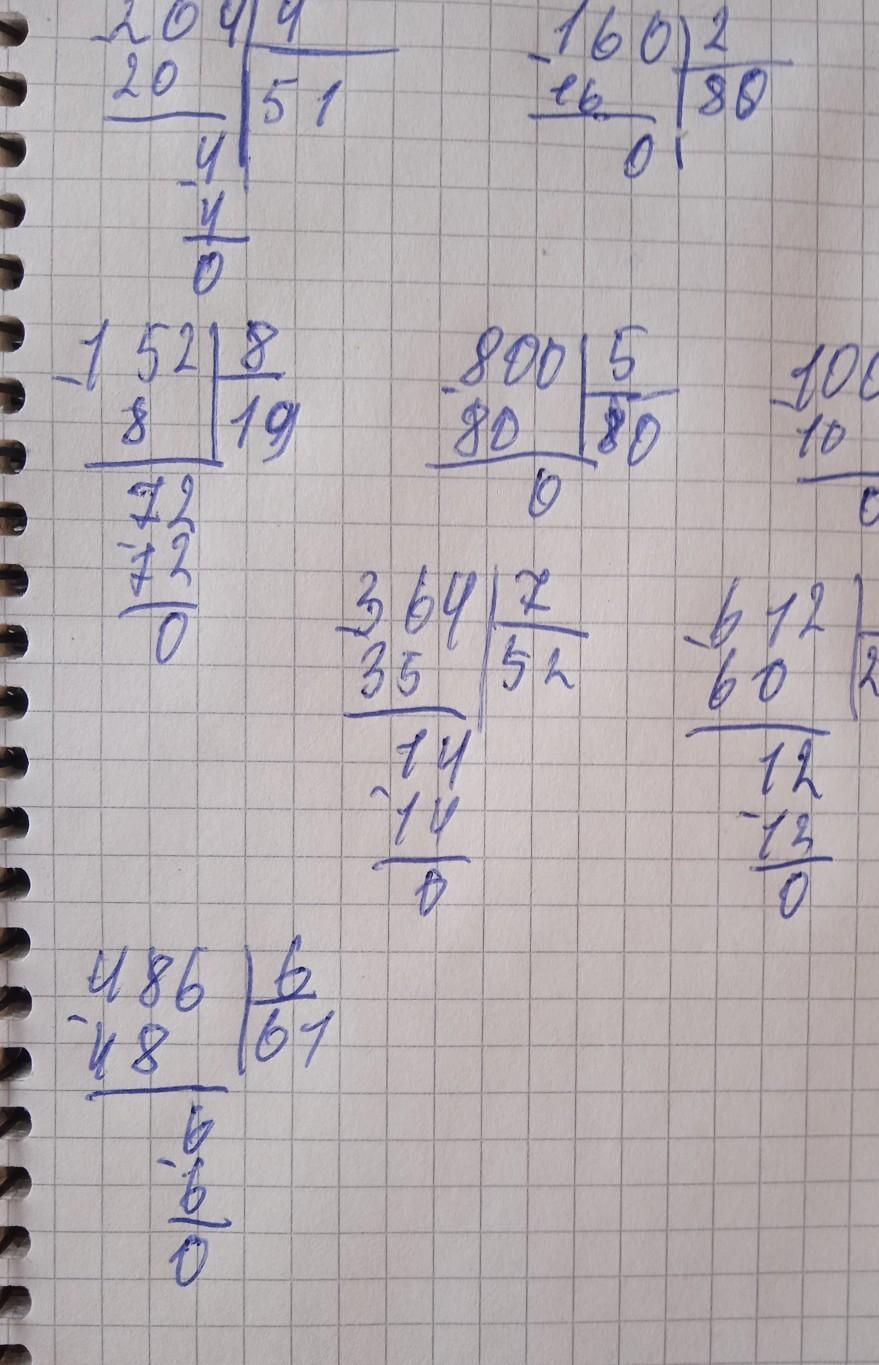 204 4
20 51
4
4
0
160 2
16 80
0
152 8
8 19
72
72
0
800 5
80 80
0
100
10
0
364 7
35 52
14
14
0
612
60 2
12
12
0
486 6
48 61
6
6
0